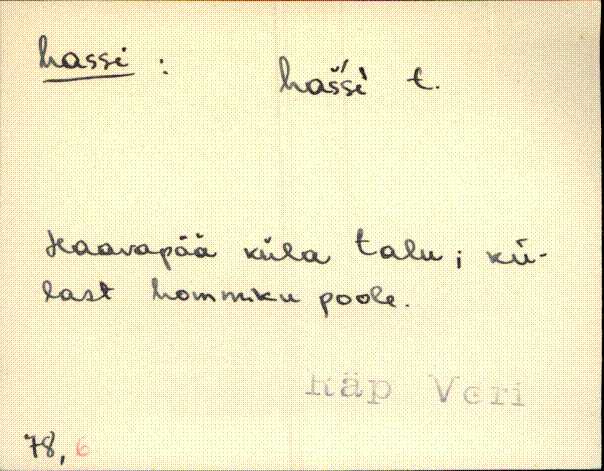 hassi : haššì t.
Haavapää küla talu; kü-
last hommiku poole.
Räp Veri
78, 6